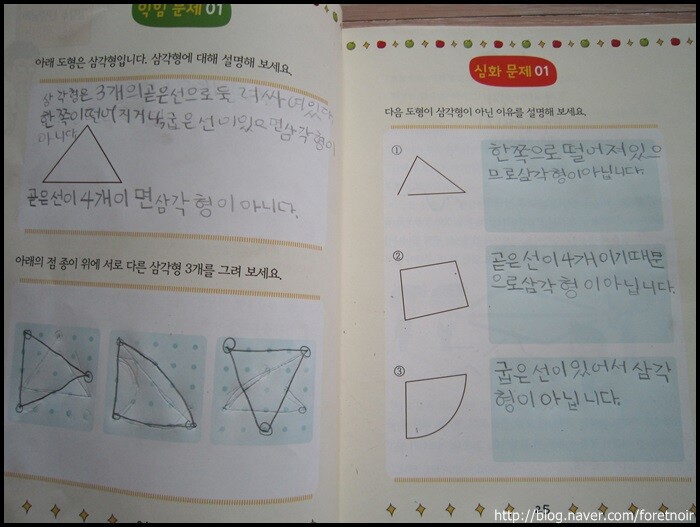 확인 문제 01
아래 도형은 삼각형입니다. 삼각형에 대해 설명해 보세요.
삼각형은 3개의곧은선으로둘러싸여있다
한쪽이떨어지거나,굽은선이있으면삼각형이
아니다.
곧은선이4개이면삼각형이아니다.
아래의 점 종이 위에 서로 다른 삼각형 3개를 그려 보세요.
심화 문제 01
다음 도형이 삼각형이 아닌 이유를 설명해 보세요.
①
한쪽으로떨어져있으
므로삼각형이아닙니다.
②
곧은선이4개이기때문
으로삼각형이아닙니다.
③
굽은선이있어서삼각
형이아닙니다.
35
http://blog.naver.com/foretnoir